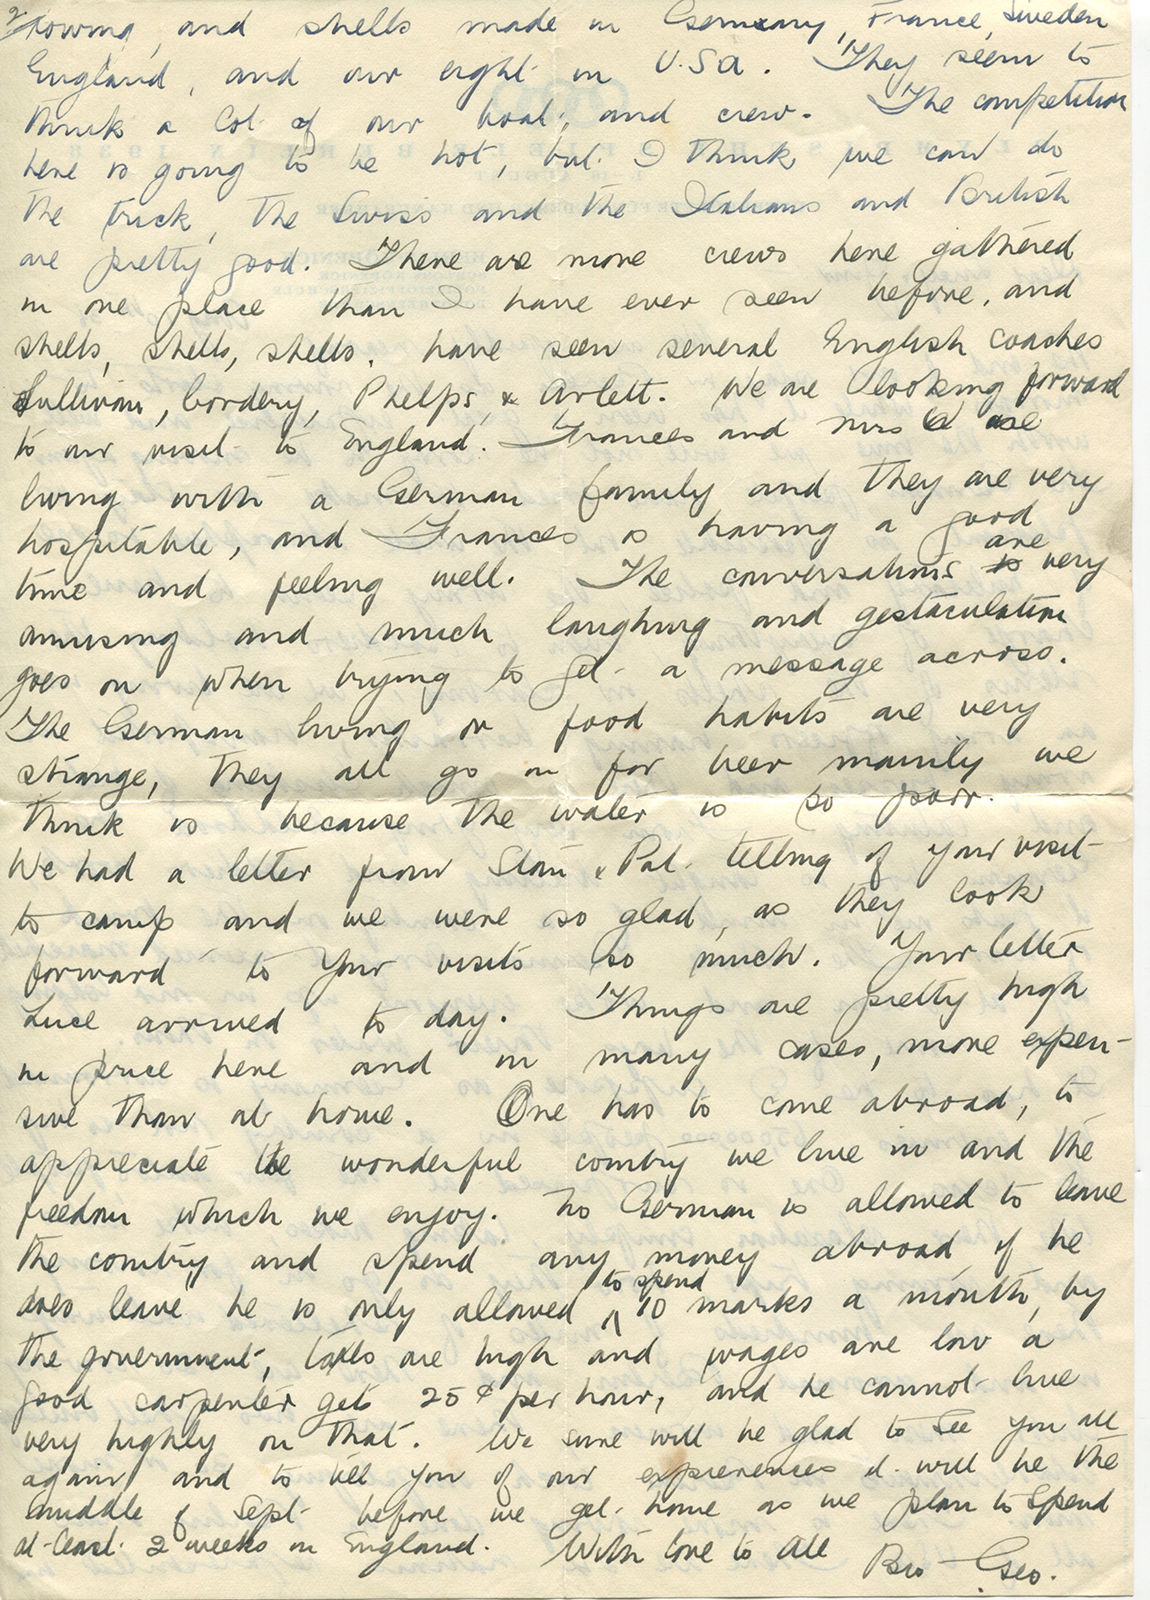 2
rowing, and shells made in Germany, France, Sweden
England, and our eight in U.S.A. They seem to
think a lot of our boat, and crew. The competition
here is going to be hot, but I think we can do
the trick, the Swiss and the Italians and British
are pretty good. There are more crews here gathered
in one place than I have ever seen before, and
shells, shells, shells. have seen several English coaches
Sullivan, Cordery, Phelps, & Arlett. We are looking forward
to our visit to England. Frances and Mrs are
living with a German family and they are very
hospitable, and Frances is having a good
time and feeling well. The conversations are very
amusing and much laughing and gestaculation
goes on when trying to get a message across.
The German living or food habits are very
strange, they all go in for beer mainily we
think is because the water is so poor.
We had a letter from Stan & Pat telling of your visit
to camp and we were so glad, as they look
forward to your visits so much. Your letter
Luce arrived to day. Things are pretty high
in price here and in many cases, more expen-
sive than at home. One has to come abroad, to
appreciate the wonderful country we live in and the
freedom which we enjoy. No German is allowed to leave
the country and spend any money abroad if he
does leave he is only allowed to spend 10 marks a month, by
the government, are high and wages are low a
good carpenter gets 25¢ per hour, and he cannot live
very highly on that. We sure will be glad to see you all
again and to tell you of our expierences it will be the
middle of Sept before we get home as we plan to spend
at least 2 weeks in England. With love to all Bro Geo.